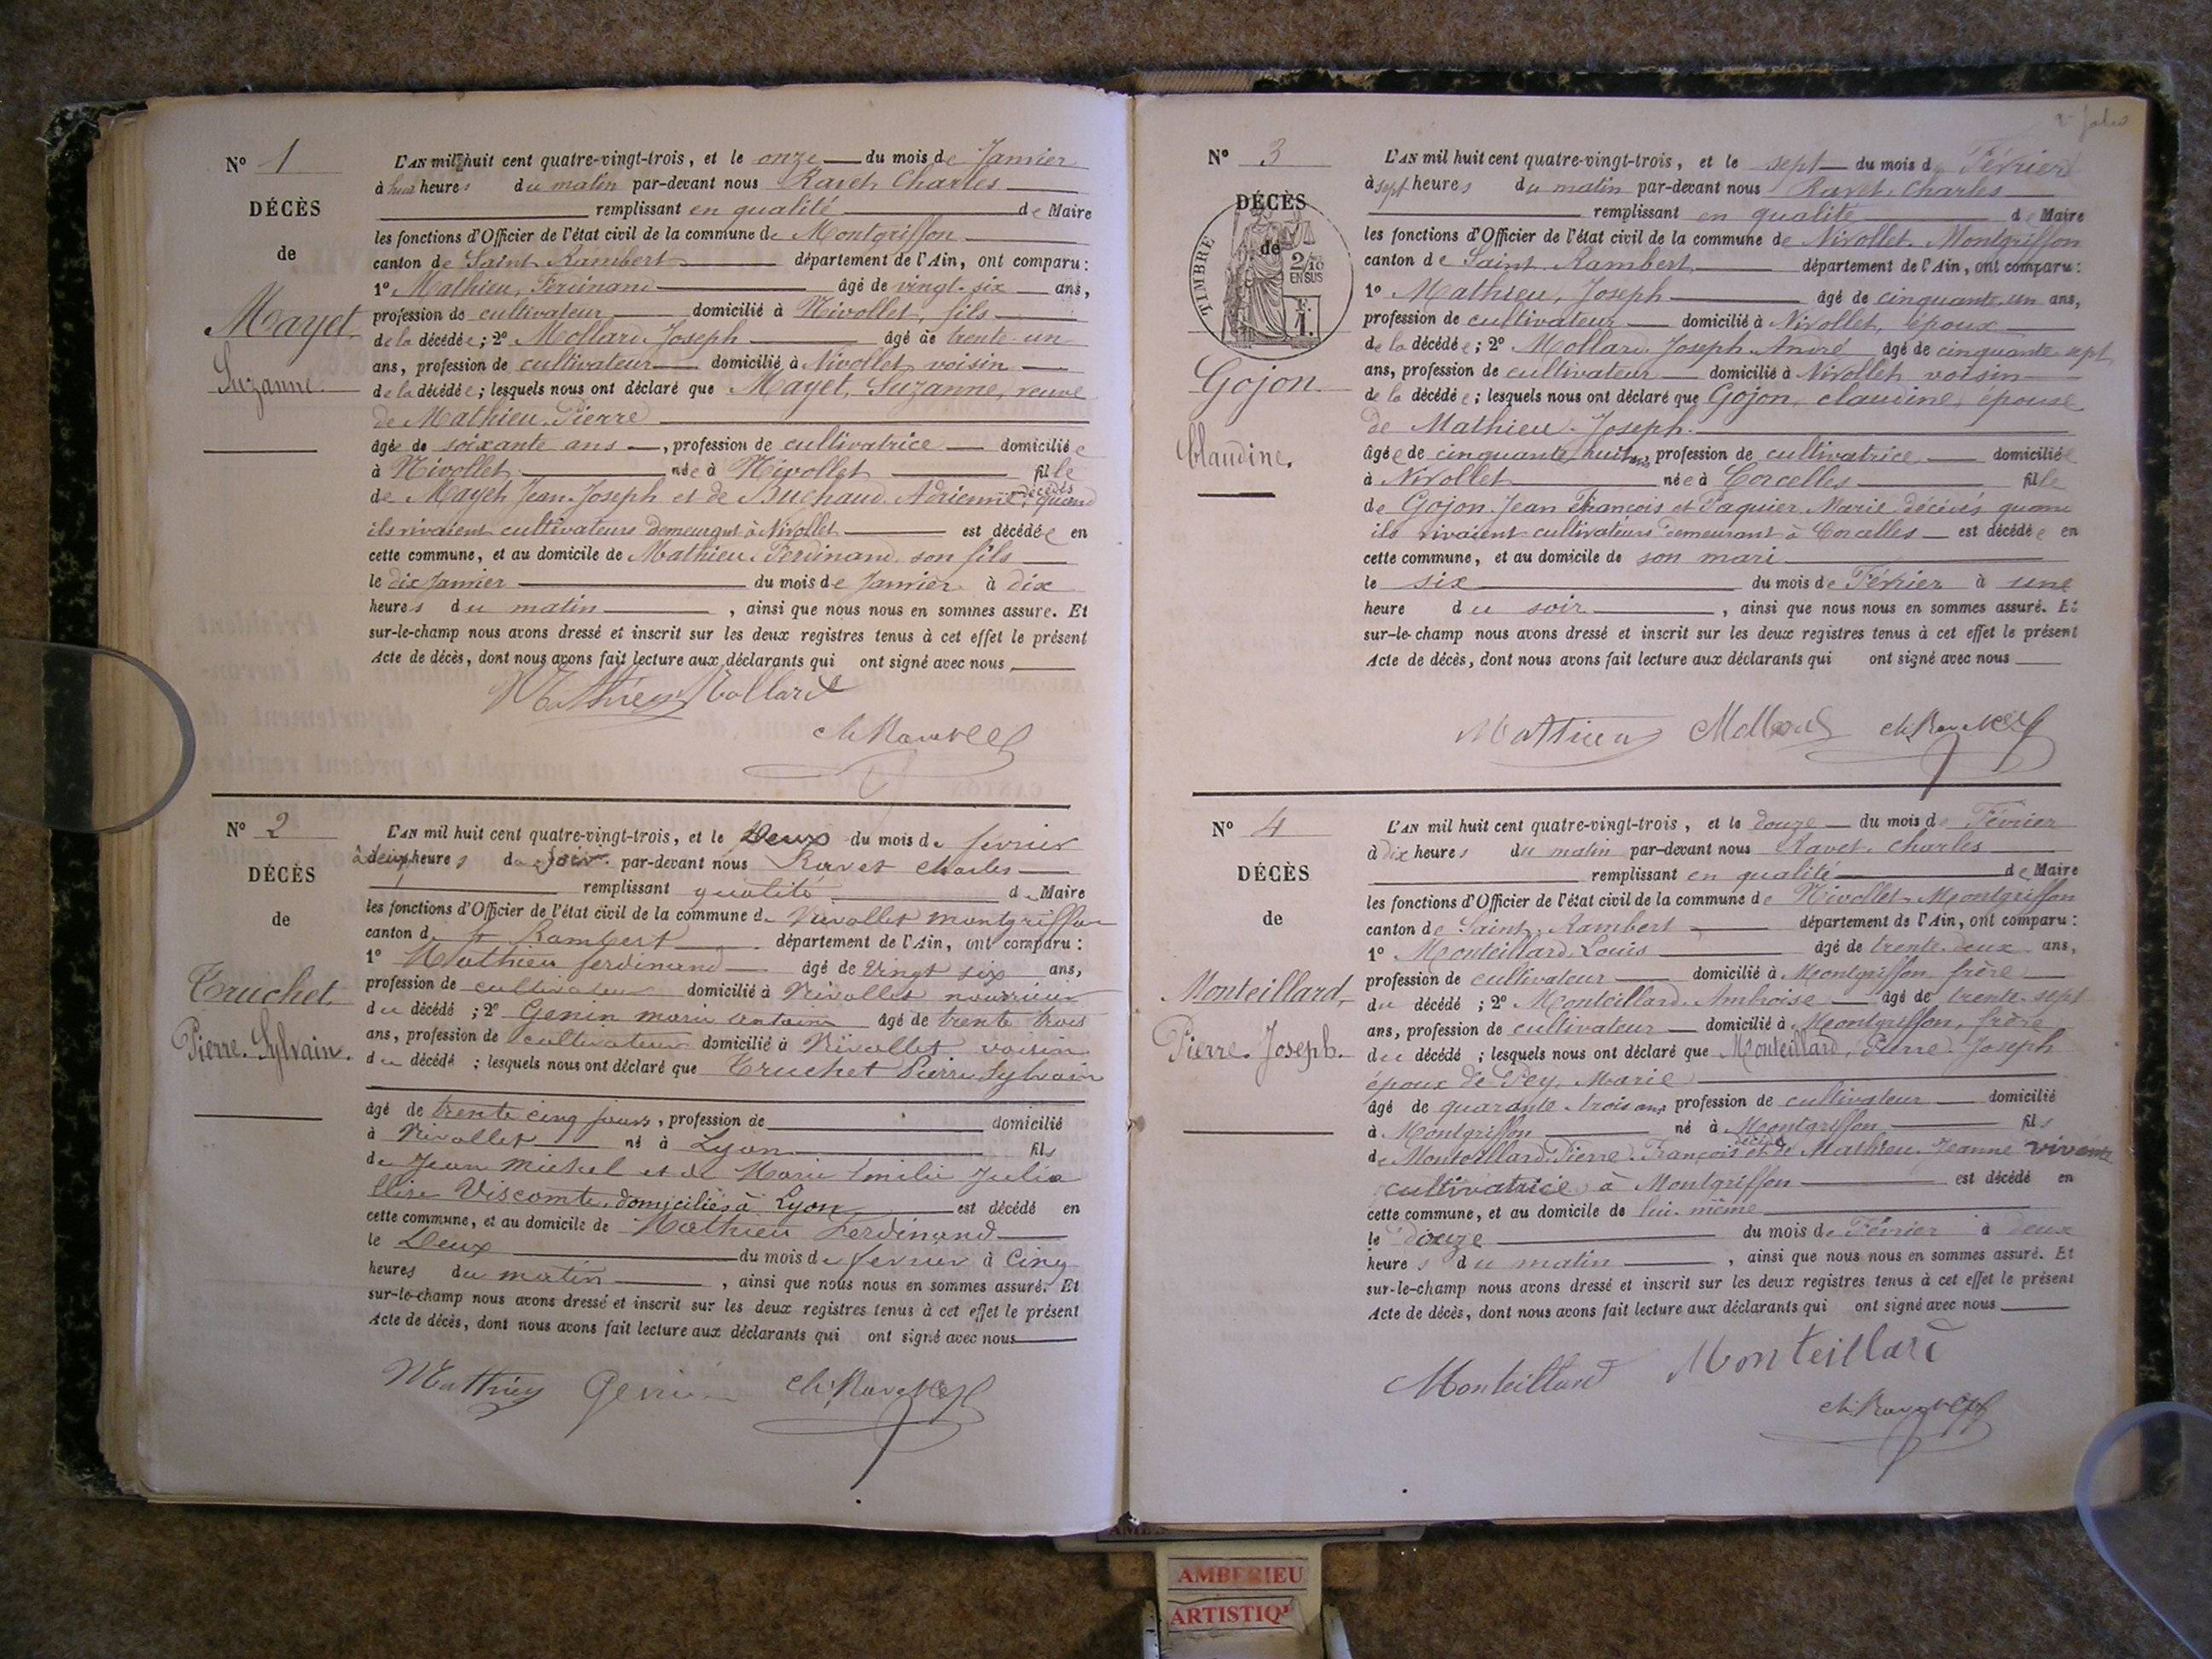 N° 1
DÉCÈS
de
Mayet
Suzanne.
L'AN mil huit cent quatre-vingt-trois, et le onze du mois de Janvier
à huit heures du matin par-devant nous Ravet Charles
remplissant en qualité de Maire
les fonctions d'Officier de l'état civil de la commune de Montgriffon
canton de Saint Rambert département de l'Ain, ont comparu :
1° Mathieu, Ferdinand âgé de vingt-six ans,
profession de cultivateur domicilié à Nivollet, fils
de la décédée ; 2° Mollard Joseph âgé de trente-un
ans, profession de cultivateur domicilié à Nivollet voisin
de la décédée ; lesquels nous ont déclaré que Mayet, Suzanne, veuve
de Mathieu Pierre
âgée de soixante ans, profession de cultivatrice domiciliée
à Nivollet née à Nivollet fille
de Mayet Jean-Joseph et de Buchaud Adrienne, décédés quand
ils vivaient cultivateurs demeurant à Nivollet est décédée en
cette commune, et au domicile de Mathieu Ferdinand son fils
le dix Janvier du mois de Janvier à dix
heures du matin, ainsi que nous nous en sommes assuré. Et
sur-le-champ nous avons dressé et inscrit sur les deux registres tenus à cet effet le présent
Acte de décès, dont nous avons fait lecture aux déclarants qui ont signé avec nous
Mathieu Mollard
ch. Ravet
N° 2
DÉCÈS
de
Truchet
Pierre Sylvain.
L'AN mil huit cent quatre-vingt-trois, et le Deux du mois de février
à deux heures du soir par-devant nous Ravet Charles
remplissant qualité de Maire
les fonctions d'Officier de l'état civil de la commune de Nivollet montgriffon
canton de St Rambert département de l'Ain, ont comparu :
1° Mathieu ferdinand âgé de vingt six ans,
profession de cultivateur domicilié à Nivollet nourricier
du décédé ; 2° Genin marie antoine âgé de trente trois
ans, profession de cultivateur domicilié à Nivollet voisin
du décédé ; lesquels nous ont déclaré que Truchet Pierre Sylvain
âgé de trente cinq jours, profession de domicilié
à Nivollet né à Lyon fils
de Jean Michel et de Marie Emilie Julia
Viscomte, domiciliés à Lyon est décédé en
cette commune, et au domicile de Mathieu Ferdinand
le Deux du mois de fevrier à Cinq
heures du matin, ainsi que nous nous en sommes assuré. Et
sur-le-champ nous avons dressé et inscrit sur les deux registres tenus à cet effet le présent
Acte de décès, dont nous avons fait lecture aux déclarants qui ont signé avec nous
Mathieu Genin ch. Ravet
N° 3
DÉCÈS
de
TIMBRE
2/10
EN SUS
F.
1.
Gojon
Claudine.
L'AN mil huit cent quatre-vingt-trois, et le sept du mois de Février
à sept heures du matin par-devant nous Ravet, Charles
remplissant en qualité de Maire
les fonctions d'Officier de l'état civil de la commune de Nivollet-Montgriffon
canton de Saint-Rambert département de l'Ain, ont comparu :
1° Mathieu, Joseph âgé de cinquante un ans,
profession de cultivateur domicilié à Nivollet, époux
de la décédée ; 2° Mollard Joseph André âgé de cinquante-sept
ans, profession de cultivateur domicilié à Nivollet voisin
de la décédée ; lesquels nous ont déclaré que Gojon, claudine, épouse
de Mathieu Joseph.
âgée de cinquante huit ans, profession de cultivatrice domiciliée
à Nivollet née à Corcelles fille
de Gojon Jean François et Paquier Marie décédés quand
ils vivaient cultivateurs demeurant à Corcelles est décédée en
cette commune, et au domicile de son mari
le six du mois de Février à une
heure du soir, ainsi que nous nous en sommes assuré. Et
sur-le-champ nous avons dressé et inscrit sur les deux registres tenus à cet effet le présent
Acte de décès, dont nous avons fait lecture aux déclarants qui ont signé avec nous
Mathieu Mollard ch. Ravet
N° 4
DÉCÈS
de
Monteillard
Pierre Joseph.
L'AN mil huit cent quatre-vingt-trois, et le douze du mois de Février
à dix heures du matin par-devant nous Ravet Charles
remplissant en qualité de Maire
les fonctions d'Officier de l'état civil de la commune de Nivollet-Montgriffon
canton de Saint-Rambert département de l'Ain, ont comparu :
1° Monteillard Louis âgé de trente-deux ans,
profession de cultivateur domicilié à Montgriffon frère
du décédé ; 2° Monteillard Ambroise âgé de trente-sept
ans, profession de cultivateur domicilié à Montgriffon, frère
du décédé ; lesquels nous ont déclaré que Monteillard, Pierre Joseph
époux de Pey, Marie
âgé de quarante-trois ans, profession de cultivateur domicilié
à Montgriffon né à Montgriffon fils
de Monteillard Pierre François décédé et de Mathieu Jeanne vivante
cultivatrice à Montgriffon est décédé en
cette commune, et au domicile de lui-même
le douze du mois de Février à deux
heures du matin, ainsi que nous nous en sommes assuré. Et
sur-le-champ nous avons dressé et inscrit sur les deux registres tenus à cet effet le présent
Acte de décès, dont nous avons fait lecture aux déclarants qui ont signé avec nous
Monteillard Monteillard
ch. Ravet
AMBERIEU
ARTISTIQ